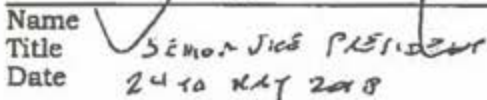 Name
Title Senior Vice President
Date 24th May 2018